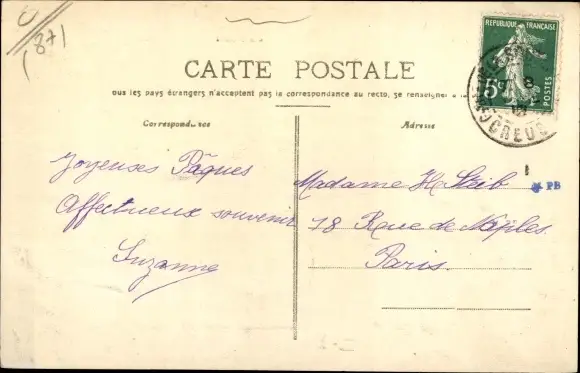 (87)
REPUBLIQUE FRANÇAISE
5c
POSTES
CREUSE
8
CARTE POSTALE
ous les pays étrangers n'acceptent pas la correspondance au recto, se renseigner
Correspondance
Adresse
Joyeuses Pâques
Affectueux souvenir
Suzanne
Madame H Steib
18 Rue de Naples.
Paris.
PB